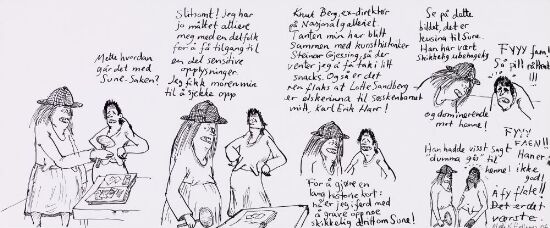 Mette hvordan
går det med
Sune-saken?
Slitsomt! Jeg har
jo måttet alliere
meg med en del folk
for å få tilgang til
en del sensitive
opplysninger.
Jeg fikk moren min
til å sjekke opp
Knut Berg, ex-direktør
på Nasjonalgalleriet.
Tanten min har blitt
sammen med kunsthistoriker
Steinar Gjessing, så der
venter jeg å få tak i litt
snacks. Også er det
ren flaks at Lotte Sandberg
er elskerinna til søskenbarnet
mitt, Karl Erik Harr!
For å gjøre en
lang historie kort:
nå er jeg i ferd med
å grave opp noe
skikkelig dritt om Sune!
Se på dette
bildet, det er
kusina til Sune.
Han har vært
skikkelig ubehagelig
og dominerende
mot henne!
FYYY faen!
Så jill
Han hadde visst sagt
"dumma gås" til
henne!
FYYY
FAEN!!
Han er
ikke
god!
Æ fy
Det er det
værste.